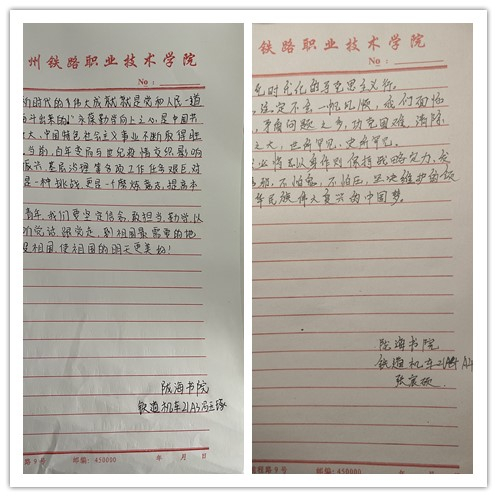 州铁路职业技术学院
No:
新时代的伟大成就就是党和人民一道
奋斗出来的！永葆勤学向上之心，是中国共
大，中国特色社会主义事业不断取得胜
当前，百年变局与世纪疫情交织影响
基层治理等多项工作任务艰巨，对
是一种挑战，更是一个磨炼意志，提高本
青年，我们要坚定信念，敢担当，勤学以
听党话，跟党走，到祖国最需要的地
祖国，使祖国的明天更美好！
陇海书院
铁道机车21A3
路9号 邮编:450000 年 月 日
铁路职业技术学院
No:
化时代化的马克思主义行。
注定不会一帆风顺，我们面临
矛盾问题之多，攻克困难、清除
之大，世所罕见，史所罕见。
保持战略定力，发
不怕鬼、不怕压，坚决维护国
华民族伟大复兴的中国梦。
陇海书院
铁道机车21 A4
路9号 邮编:450000 年 月 日